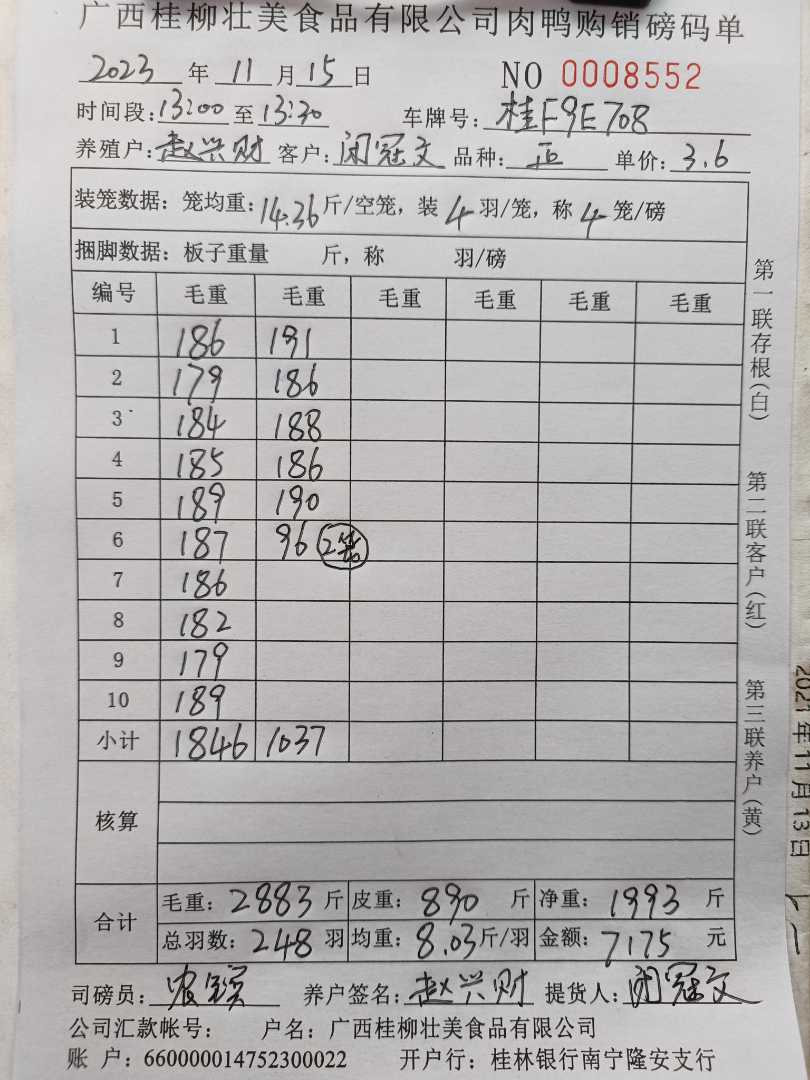 广西桂柳壮美食品有限公司肉鸭购销磅码单
2023 年 11 月 15 日 NO 0008552
时间段:13:00 至 13:30 车牌号:桂F9E708
养殖户:赵兴财 客户:闭冠文 品种: 单价:3.6
装笼数据:笼均重:14.36斤/空笼,装 4 羽/笼,称 4 笼/磅
捆脚数据:板子重量 斤,称 羽/磅
编号 毛重 毛重 毛重 毛重 毛重 毛重
1 186 191
2 179 186
3 184 188
4 185 186
5 189 190
6 187 96 2笼
7 186
8 182
9 179
10 189
小计 1846 1037
核算
合计 毛重:2883斤 皮重:890 斤 净重:1993 斤
总羽数:248 羽 均重:8.03斤/羽 金额:7175 元
司磅员: 养户签名:赵兴财 提货人:闭冠文
公司汇款帐号: 户名:广西桂柳壮美食品有限公司
账 户:660000014752300022 开户行:桂林银行南宁隆安支行
第一联存根(白) 第二联客户(红) 第三联养户(黄)
2021年11月13日